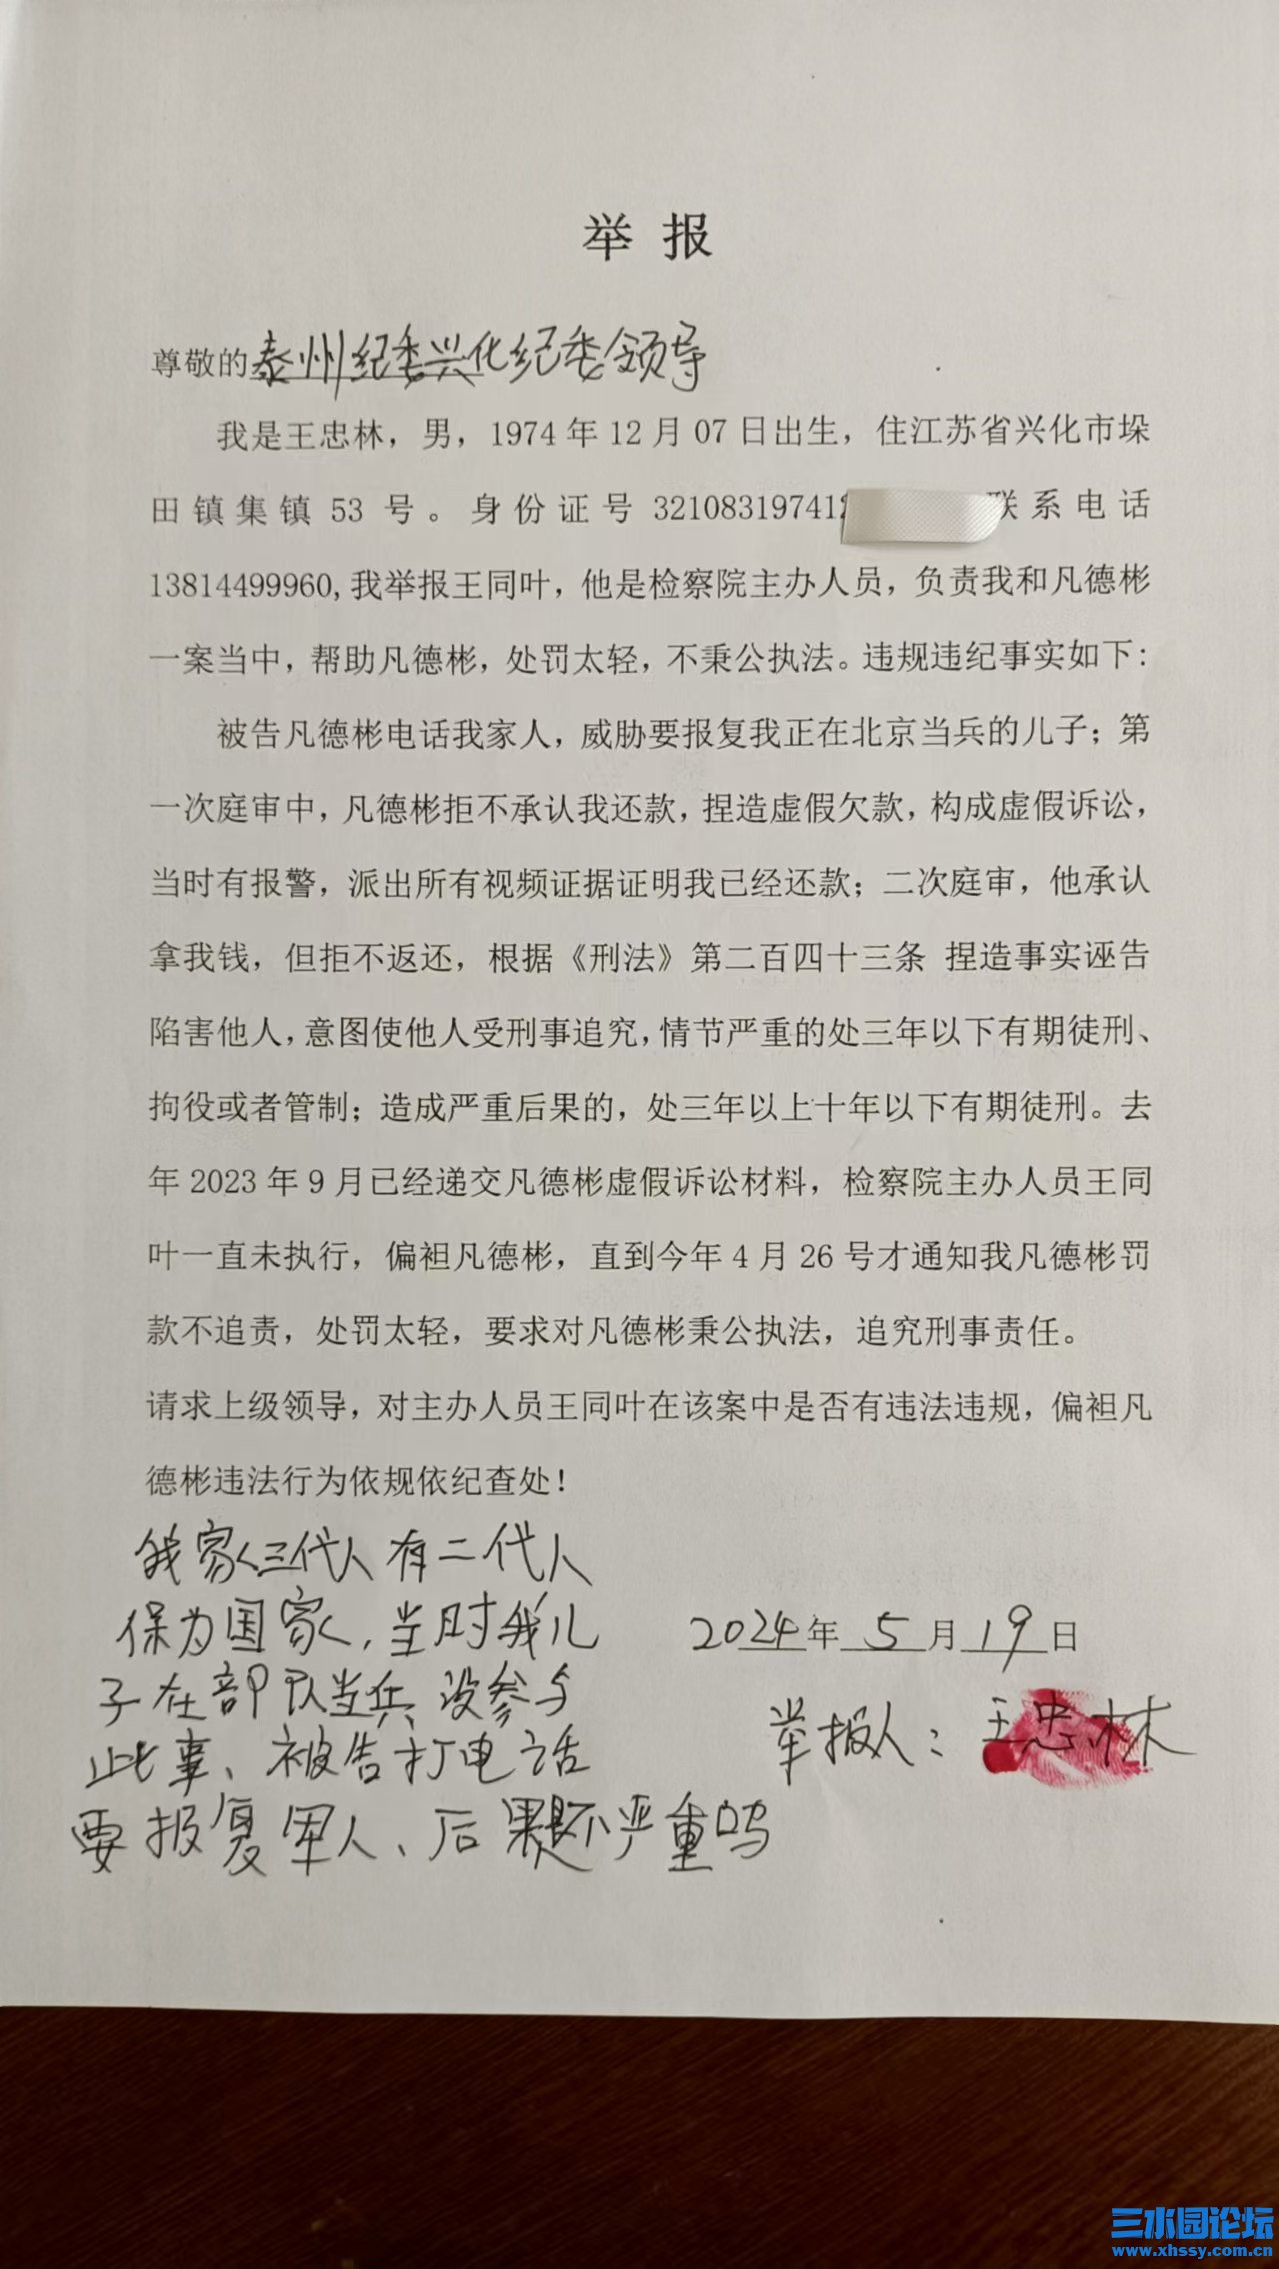 举 报
尊敬的泰州纪委兴化纪委领导
我是王忠林，男，1974 年 12 月 07 日出生，住江苏省兴化市垛
田镇集镇 53 号。身份证号 321083197412 联系电话
13814499960,我举报王同叶，他是检察院主办人员，负责我和凡德彬
一案当中，帮助凡德彬，处罚太轻，不秉公执法。违规违纪事实如下：
被告凡德彬电话我家人，威胁要报复我正在北京当兵的儿子；第
一次庭审中，凡德彬拒不承认我还款，捏造虚假欠款，构成虚假诉讼，
当时有报警，派出所有视频证据证明我已经还款；二次庭审，他承认
拿我钱，但拒不返还，根据《刑法》第二百四十三条 捏造事实诬告
陷害他人，意图使他人受刑事追究，情节严重的处三年以下有期徒刑、
拘役或者管制；造成严重后果的，处三年以上十年以下有期徒刑。去
年 2023 年 9 月已经递交凡德彬虚假诉讼材料，检察院主办人员王同
叶一直未执行，偏袒凡德彬，直到今年 4 月 26 号才通知我凡德彬罚
款不追责，处罚太轻，要求对凡德彬秉公执法，追究刑事责任。
请求上级领导，对主办人员王同叶在该案中是否有违法违规，偏袒凡
德彬违法行为依规依纪查处！
我家三代人有二代人
保为国家，当时我儿
子在部队当兵没参与
此事、被告打电话
要报复军人、后果还不严重吗
2024年 5 月 19 日
举报人：王忠林
三水园论坛
www.xhssy.com.cn